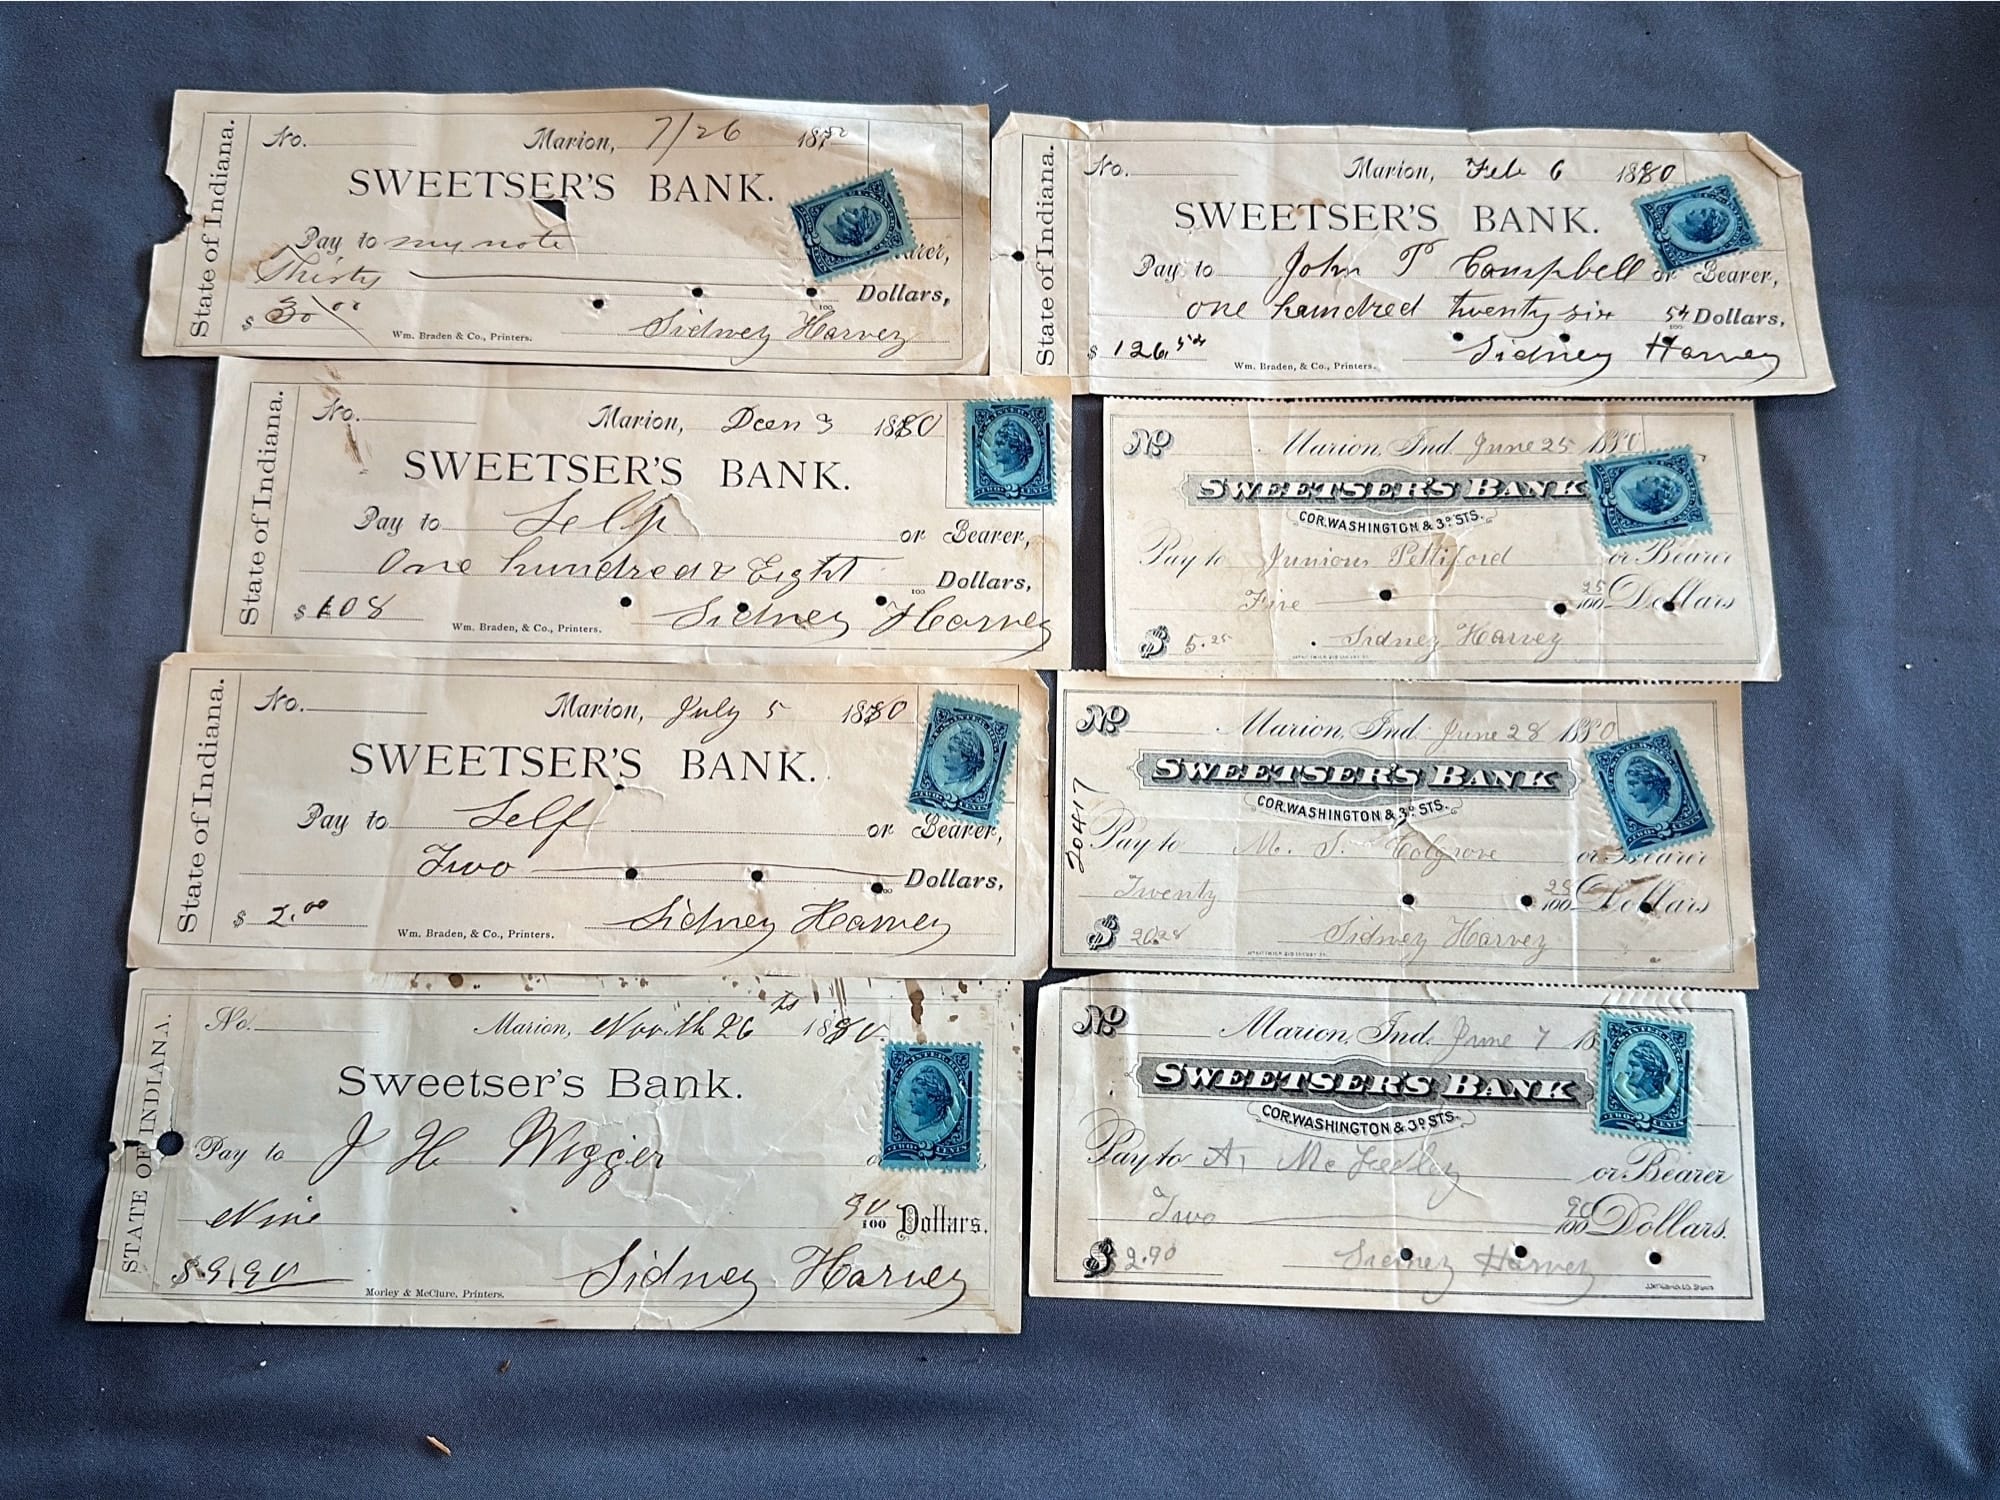 State of Indiana.
No. Marion, 7/26 18
SWEETSER'S BANK.
Pay to my note
Thirty Dollars,
$ 30 00
Wm. Braden & Co., Printers. Sidney Harvey
State of Indiana.
No. Marion, Feb 6 1880
SWEETSER'S BANK.
Pay to John T Campbell or Bearer,
one hundred twenty six 54/100 Dollars,
$ 126.54
Wm. Braden, & Co., Printers. Sidney Harvey
State of Indiana.
No. Marion, 3 1880
SWEETSER'S BANK.
Pay to Self or Bearer,
One hundred & Eight /100 Dollars,
$ 108
Wm. Braden, & Co., Printers. Sidney Harvey
No Marion, Ind. June 25 1880
SWEETSER'S BANK
COR. WASHINGTON & 3D STS.
Pay to Junious Pettiford or Bearer
Five 25/100 Dollars
$ 5.25 Sidney Harvey
State of Indiana.
No. Marion, July 5 1880
SWEETSER'S BANK.
Pay to Self or Bearer,
Two Dollars,
$ 2.00
Wm. Braden, & Co., Printers. Sidney Harvey
No Marion, Ind. June 28 1880
SWEETSER'S BANK
COR. WASHINGTON & 3D STS.
20417
Pay to M. S. Colgrove or Bearer
Twenty 28/100 Dollars
$ 20.28 Sidney Harvey
STATE OF INDIANA.
No. Marion, 26 1880.
Sweetser's Bank.
Pay to J H Wigger
Nine 90/100 Dollars.
$ 9.90
Morley & McClure, Printers. Sidney Harvey
No Marion, Ind. June 7 18
SWEETSER'S BANK
COR. WASHINGTON & 3D STS.
Pay to A, McFeeley or Bearer
Two 90/100 Dollars.
$ 2.90 Sidney Harvey